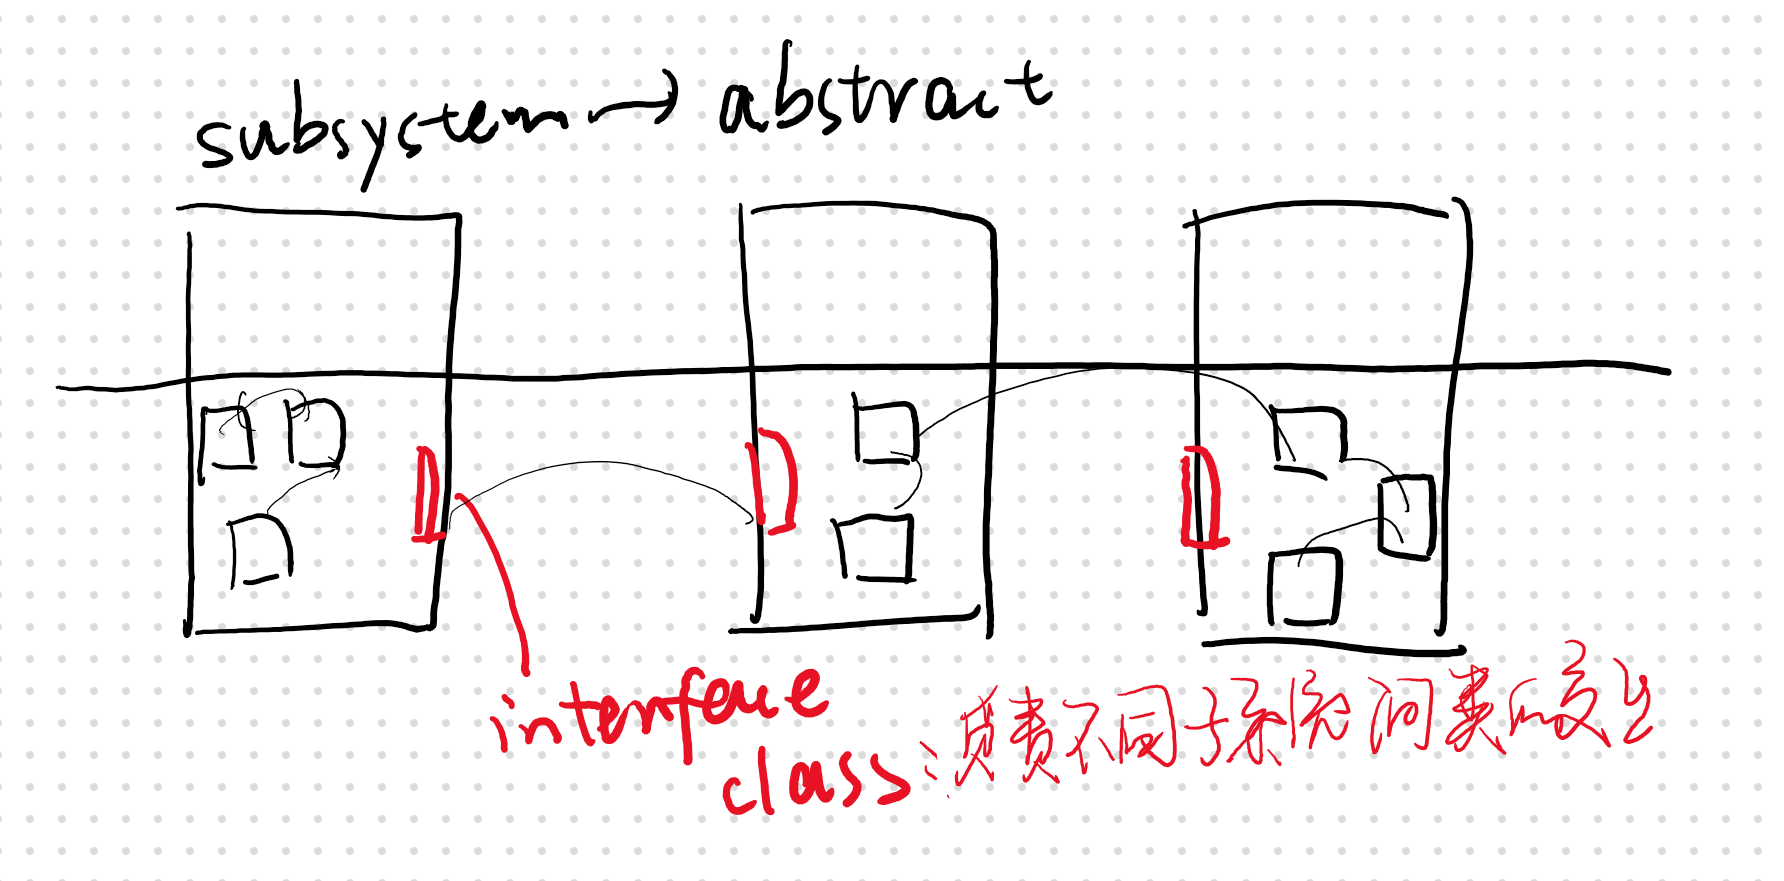 subsystem → abstract
interface
class：消费不同子系统间类的交互